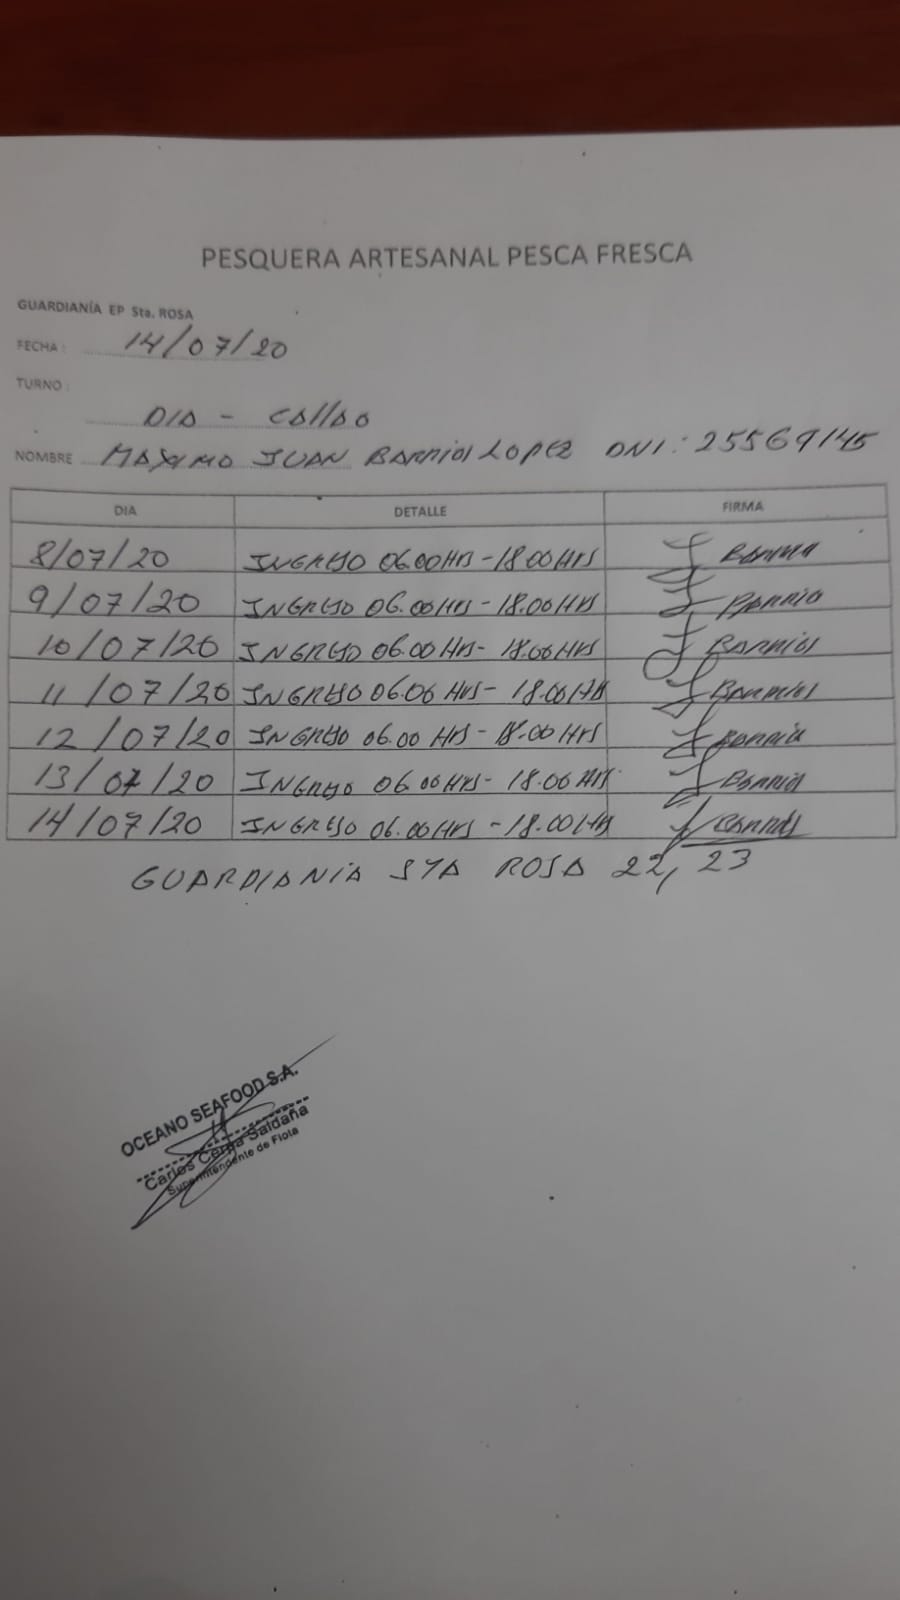 PESQUERA ARTESANAL PESCA FRESCA
GUARDIANÍA EP Sta. ROSA
FECHA : 14/07/20
TURNO :
DIA - CALLAO
NOMBRE MAXIMO JUAN BARRIOS LOPEZ DNI: 25569145
DIA DETALLE FIRMA
8/07/20 INGRESO 06.00 HRS - 18.00 HRS Barrios
9/07/20 INGRESO 06.00 HRS - 18.00 HRS Barrios
10/07/20 INGRESO 06.00 HRS - 18.00 HRS Barrios
11/07/20 INGRESO 06.00 HRS - 18.00 HRS Barrios
12/07/20 INGRESO 06.00 HRS - 18.00 HRS Barrios
13/07/20 INGRESO 06.00 HRS - 18.00 HRS Barrios
14/07/20 INGRESO 06.00 HRS - 18.00 HRS Barrios
GUARDIANIA STA ROSA 22, 23
OCEANO SEAFOOD S.A.
Carlos Saldaña
Superintendente de Flota